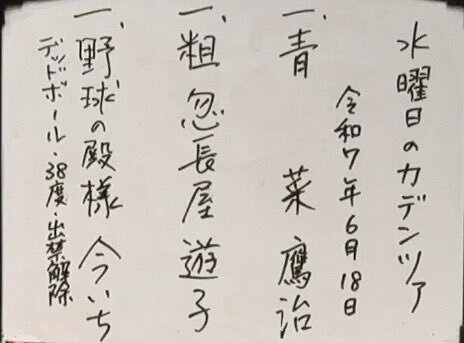 水曜日のカデンツァ
令和7年6月18日
一、青菜 鷹治
一、粗忽長屋 遊子
一、野球の殿様 今いち
デッドボール・38度・出禁解除